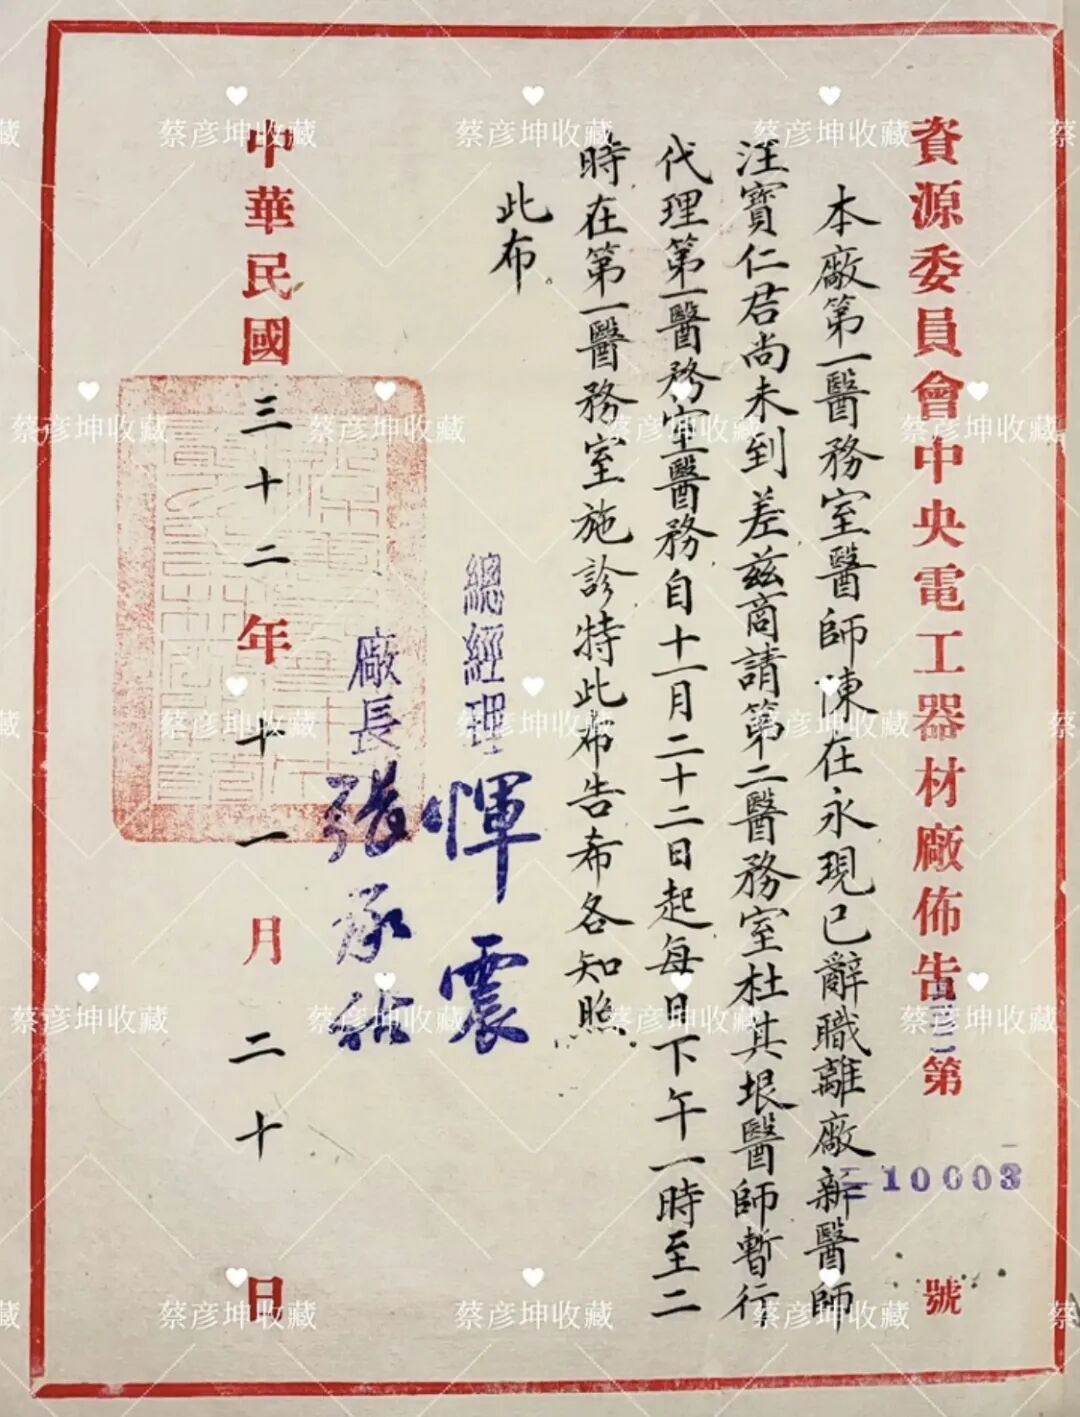 資源委員會中央電工器材廠佈告第10003號
本廠第一醫務室醫師陳在永現已辭職離廠新醫師
汪寶仁君尚未到差茲商請第二醫務室杜其垠醫師暫行
代理第一醫務室醫務自十一月二十二日起每日下午一時至二
時在第一醫務室施診特此布告希各知照
此布
總經理惲震
廠長張承祜
中華民國三十二年十一月二十日
蔡彦坤收藏